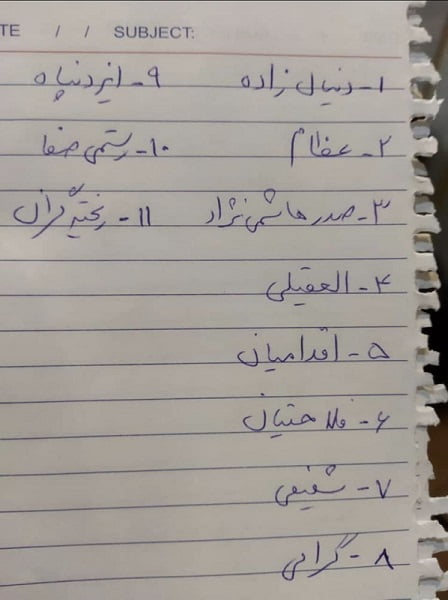 TE / / SUBJECT:
۱- دنیال زاده
۲- عظام
۳- صدرهاشمی نژاد
۴- العقیلی
۵- اقدامیان
۶- فلاحتیان
۷- شفیعی
۸- گرامی
۹- ایزدپناه
۱۰- رستمی صفا
۱۱- ریخته گران